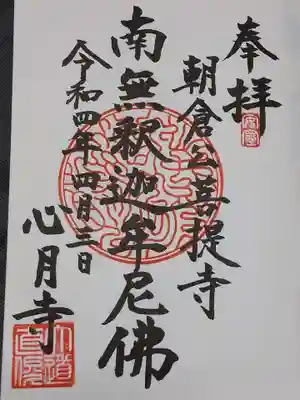 奉拝
朝倉公菩提寺
南無釈迦牟尼佛
令和四年四月三日
心月寺